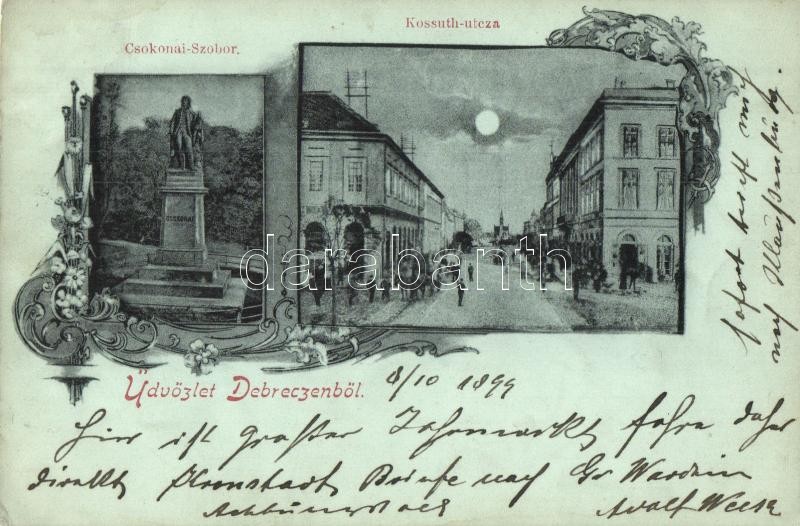 Kossuth-utcza
Csokonai-Szobor.
CSOKONAI
darabanth
Üdvözlet Debreczenből.
8/10 1899
Hier ist großer Jahrmarkt fahre daher
direkt Kronstadt Briefe nach Gr Wardein
Achtungsvoll
Adolf
sofort
nach Klausenburg.